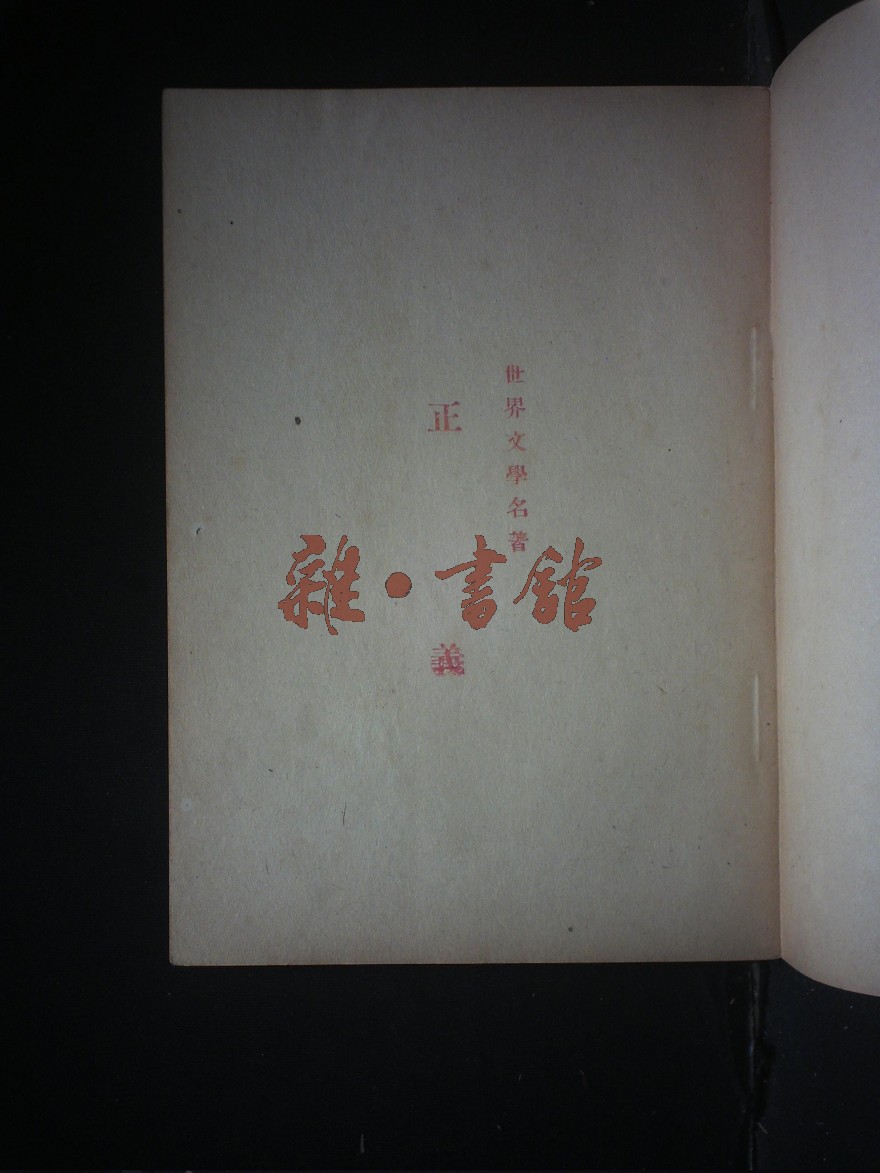 世界文學名著
正義
雜·書館